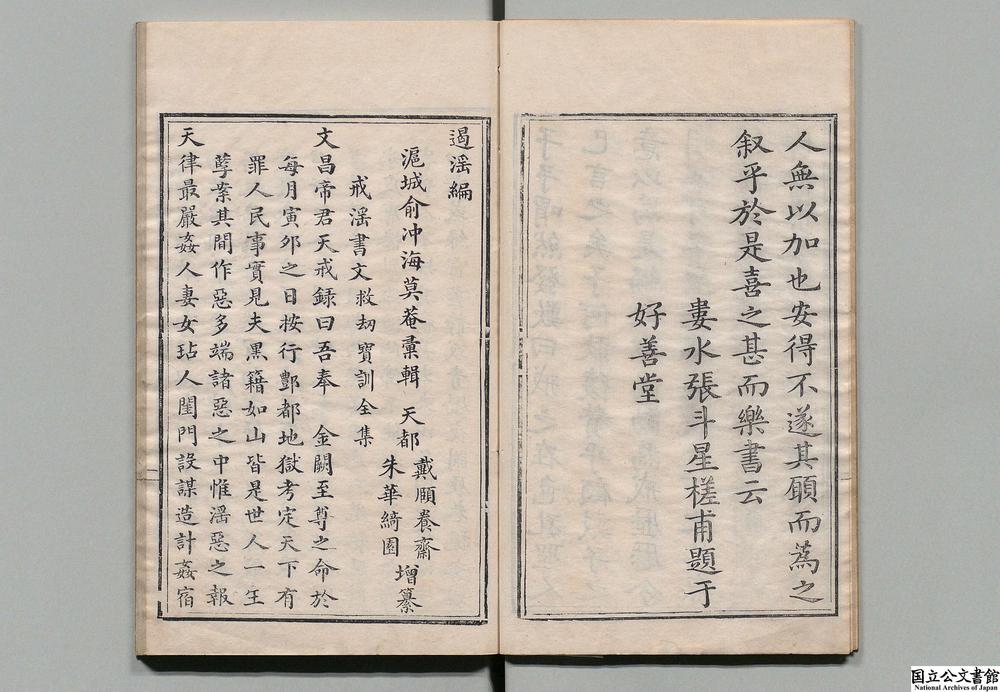 人無以加也安得不遂其願而為之
叙乎於是喜之甚而樂書云
婁水張斗星槎甫題于
好善堂
遏滛編
滬城俞冲海莫菴彚輯 天都 戴頋養齋 朱華綺園 增纂
戒滛書文救刼寳訓全集
文昌帝君天戒録曰吾奉 金闕至尊之命於
每月寅夘之日按行酆都地獄考定天下有
罪人民事實見夫黑籍如山皆是世人一生
孽案其間作惡多端諸惡之中惟滛惡之報
天律最嚴姦人妻女玷人閨門設謀造計姦宿
国立公文書館
National Archives of Japan